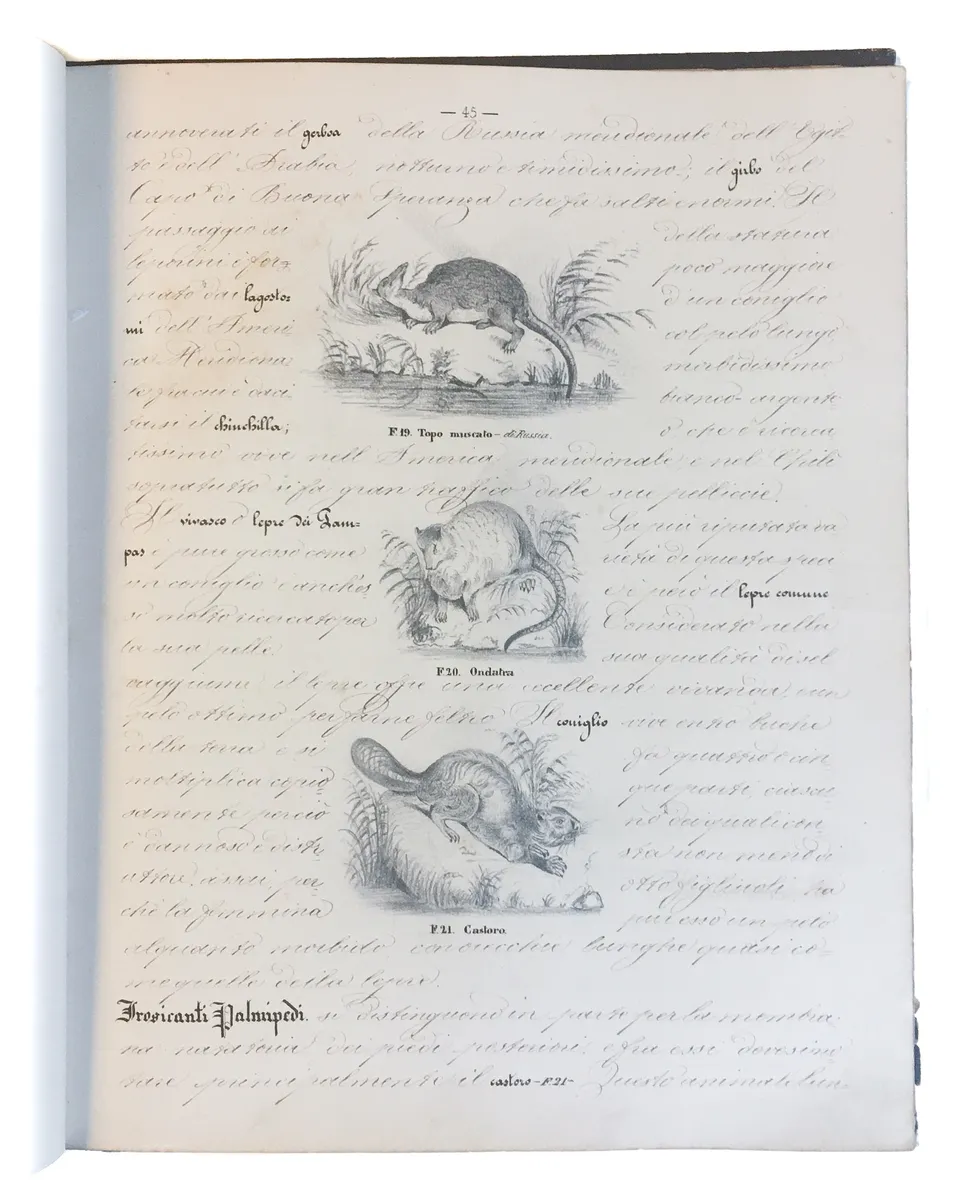 — 45 —
annoverati il gerboa della Russia meridionale dell' Egit-
to e dell' Arabia, notturno e timidissimo; il girbo del
Capo di Buona Speranza che fa salti enormi. Il
passaggio ai
leporini è for=
mato dai lagosto=
mi dell' Ameri
ca Meridiona
le fra cui è da ci
tarsi il chinchilla;
della statura
poco maggiore
d'un coniglio
col pelo lungo,
morbidissimo
bianco-argente
o, che è ricerca
F.19. Topo muscato — di Russia.
tissimo vive nell' America meridionale, e nel Chilì
sopratutto si fa gran traffico delle sue pelliccie.
Il vivasco o lepre dei Pam=
pas è pure grosso come
un coniglio e anch'es
si molto ricercato per
la sua pelle.
La più riputata va
rietà di questa spe
e è però il lepre comune
Considerato nella
sua qualità di sel
F.20. Ondatra
vaggiume il lepre offre una eccellente vivanda, e un
pelo ottimo per farne feltro. Il coniglio vive entro buche
della terra e si
moltiplica copio
samente perciò
è dannoso e distr
uttore assai, per
chè la femmina
fa quattro o cin
que parti, ciascu
no dei quali con
sta non meno di
otto figliuoli, ha
pur esso un pelo
F.21. Castoro.
alquanto morbido, con orecchie lunghe quasi co=
me quelle della lepre.
Trosicanti Palmipedi. si distinguono in parte per la membra
na natatoria dei piedi posteriori, e fra essi devesi no
tare principalmente il castoro -F.21- Questo animale lun-